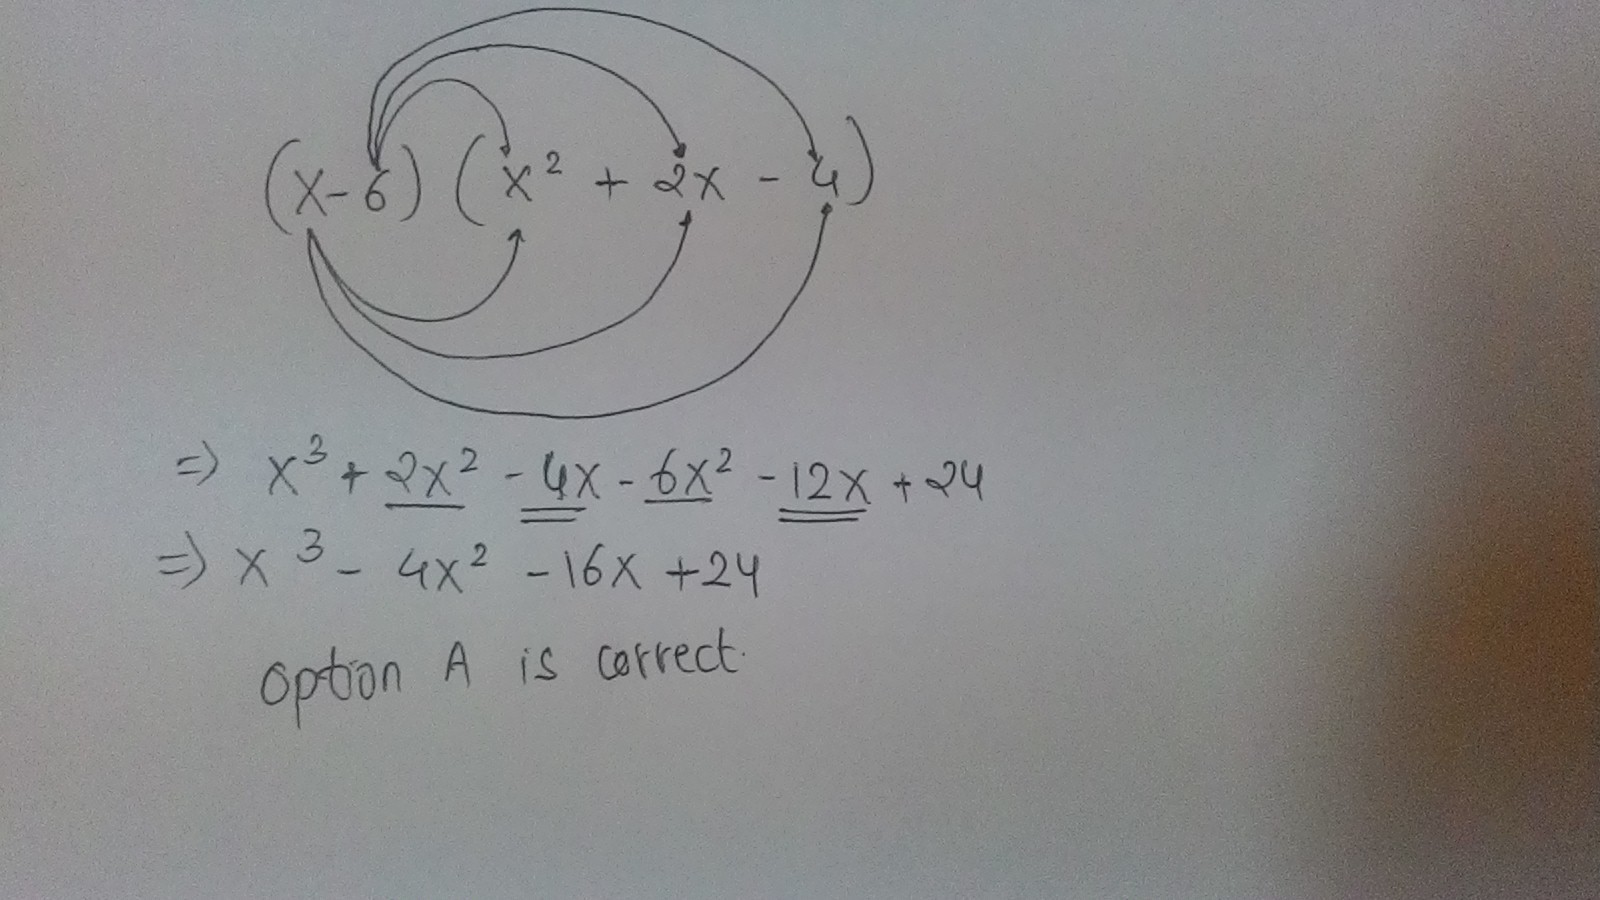 (x-6) (x² + 2x - 4)
=> x³ + 2x² - 4x - 6x² - 12x + 24
=> x³ - 4x² - 16x + 24
option A is correct.